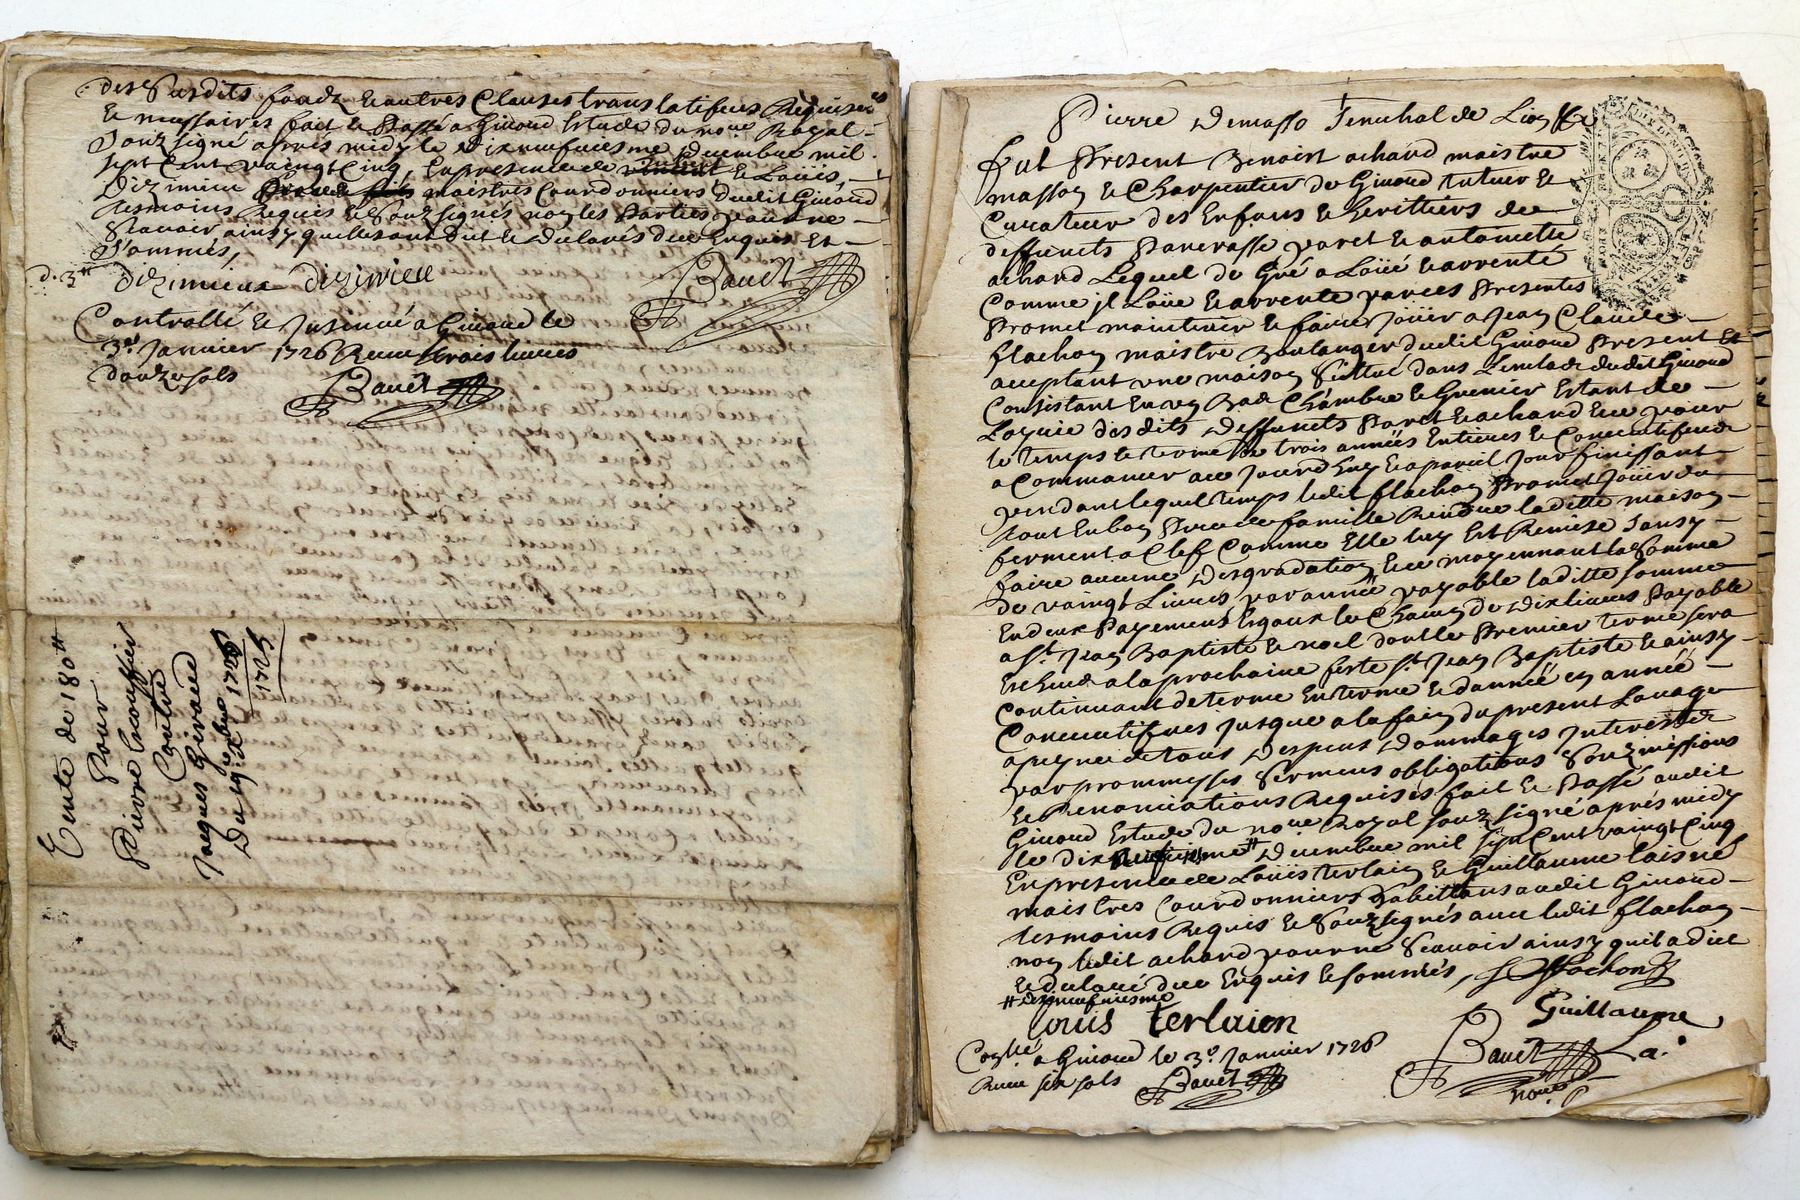 des Susdits fondz & autres Clauses translatifves Requises
& nessaires fait & Passé a Givord Estude du no.re Royal
Souz signé apres midy le dixneufiesme decembre mil
sept Cent vaingt Cinq, En presence de & Louis
Dizimieu maistres Courdonniers dudit Givord
tesmoins Requis & Souz signés non les Parties pour ne
Scavoir ainsy quelles ont dit & declarés de ce Enquis Et
Sommés,
dizimieux dizimieu Bauet
Controllé & Insinué a Givord le
3e. Janvier 1726 Receu trois livres
douze sols
Bauet
Vente de 180#
Pour
Pierre Chouffier
Contre
Jacques Giraud
Du 19e Xbre
1725
Pierre Demasso Senechal de Lion
fut Present Benoist achard maistre
masson & Charpentier de Givord tuteur &
Curateur des Enfans & herittiers de
deffuncts Pancrasse paret & antoinette
achard Lequel de Gré a Loüé & arrenté
Comme jl Loüe & arrente par ces Presentes
Promet maintenir & faire joüir a Jean Claude
flachon maistre Boulanger dudit Givord Present Et
acceptant une maison Sittué dans L'enclos dudit Givord
Consistant En un Bas Chambre & Grenier Estant de
Loyrie desdits deffuncts Paret & achard & ce pour
le temps & terme de trois années Entieres & Consecutifves
a Commancer ce Jourdhuy & a pareil Jour finissant
pendant lequel temps ledit flachon Promet Joüir du
tout En bon Pere de famille Rendre laditte maison
ferment a Clef Comme Elle luy Est Remise Sans y
faire aucune desgradation & ce moyennant la Somme
de vaingt Livres par année payable laditte somme
En deux Payemens Esgaux de Chacun de dix livres Payable
a St. Jean Baptiste & noel dont le Premier terme sera
Escheu a la prochaine feste St. Jean Baptiste & ainsy
Continuant de terme En terme & dannée en année
Consecutifves jusque a la fain du present Louage
a peyne de tous despens dommages Interests &
par prommesses Sermens obligations Souzmissions
& Renonciations Requises fait & Passé audit
Givord Estude du no.re Royal Souz signé aprés midy
le dix # decembre mil sept Cent vaingt Cinq
En presence de Louis terlain & Guillaume laisné
maistres Courdonniers habittans audit Givord
tesmoins Requis & Souz signés avec ledit flachon
non ledit achard pour ne Scavoir ainsy quil a dict
& declaré de ce Enquis & sommés, flachon
# dixneufviesme
louis terlaien Guillaume
La.
Con.llé a Givord le 3e. Janvier 1726 Bauet
Receu six sols Bauet no.re